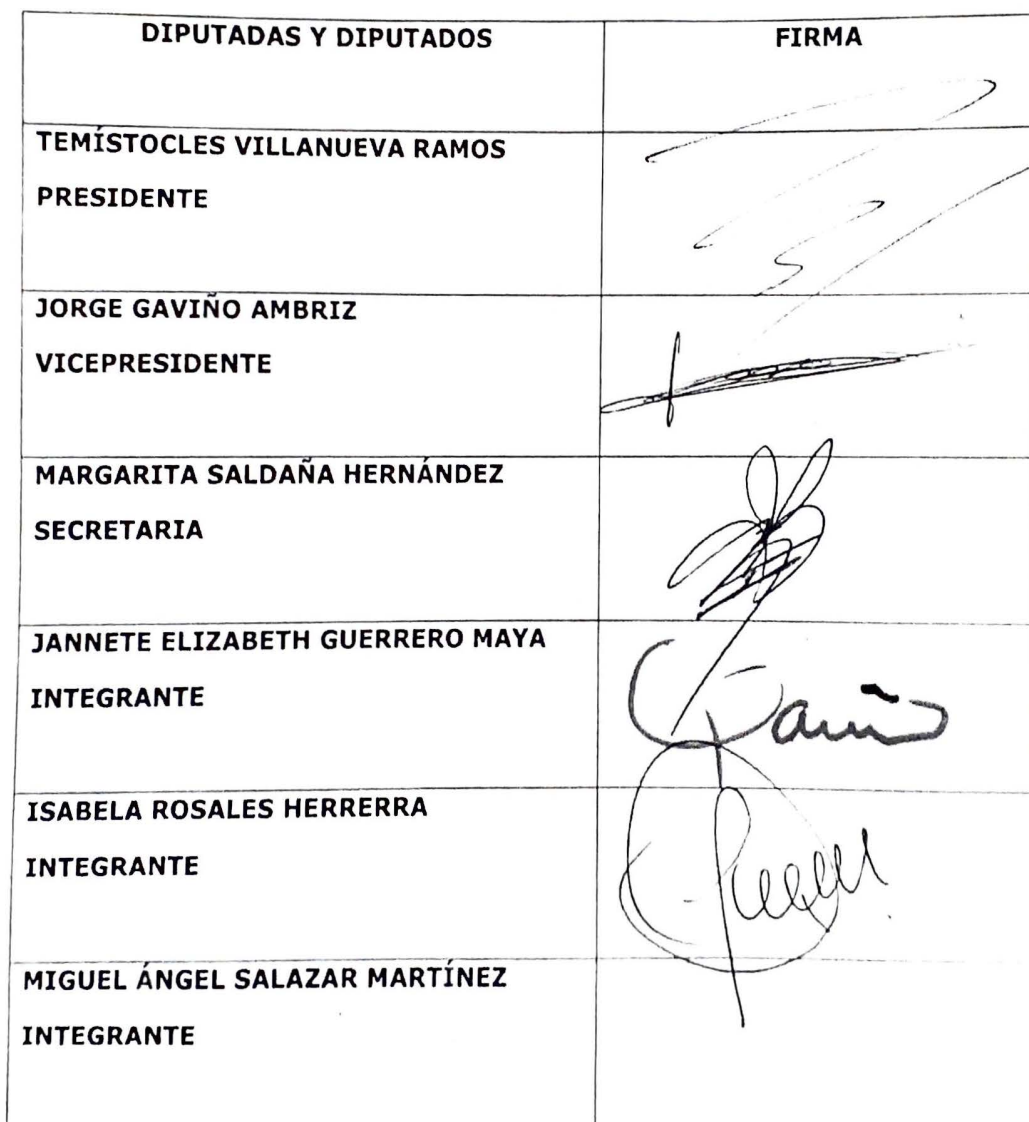 DIPUTADAS Y DIPUTADOS FIRMA
TEMÍSTOCLES VILLANUEVA RAMOS
PRESIDENTE
JORGE GAVIÑO AMBRIZ
VICEPRESIDENTE
MARGARITA SALDAÑA HERNÁNDEZ
SECRETARIA
JANNETE ELIZABETH GUERRERO MAYA
INTEGRANTE
ISABELA ROSALES HERRERRA
INTEGRANTE
MIGUEL ÁNGEL SALAZAR MARTÍNEZ
INTEGRANTE